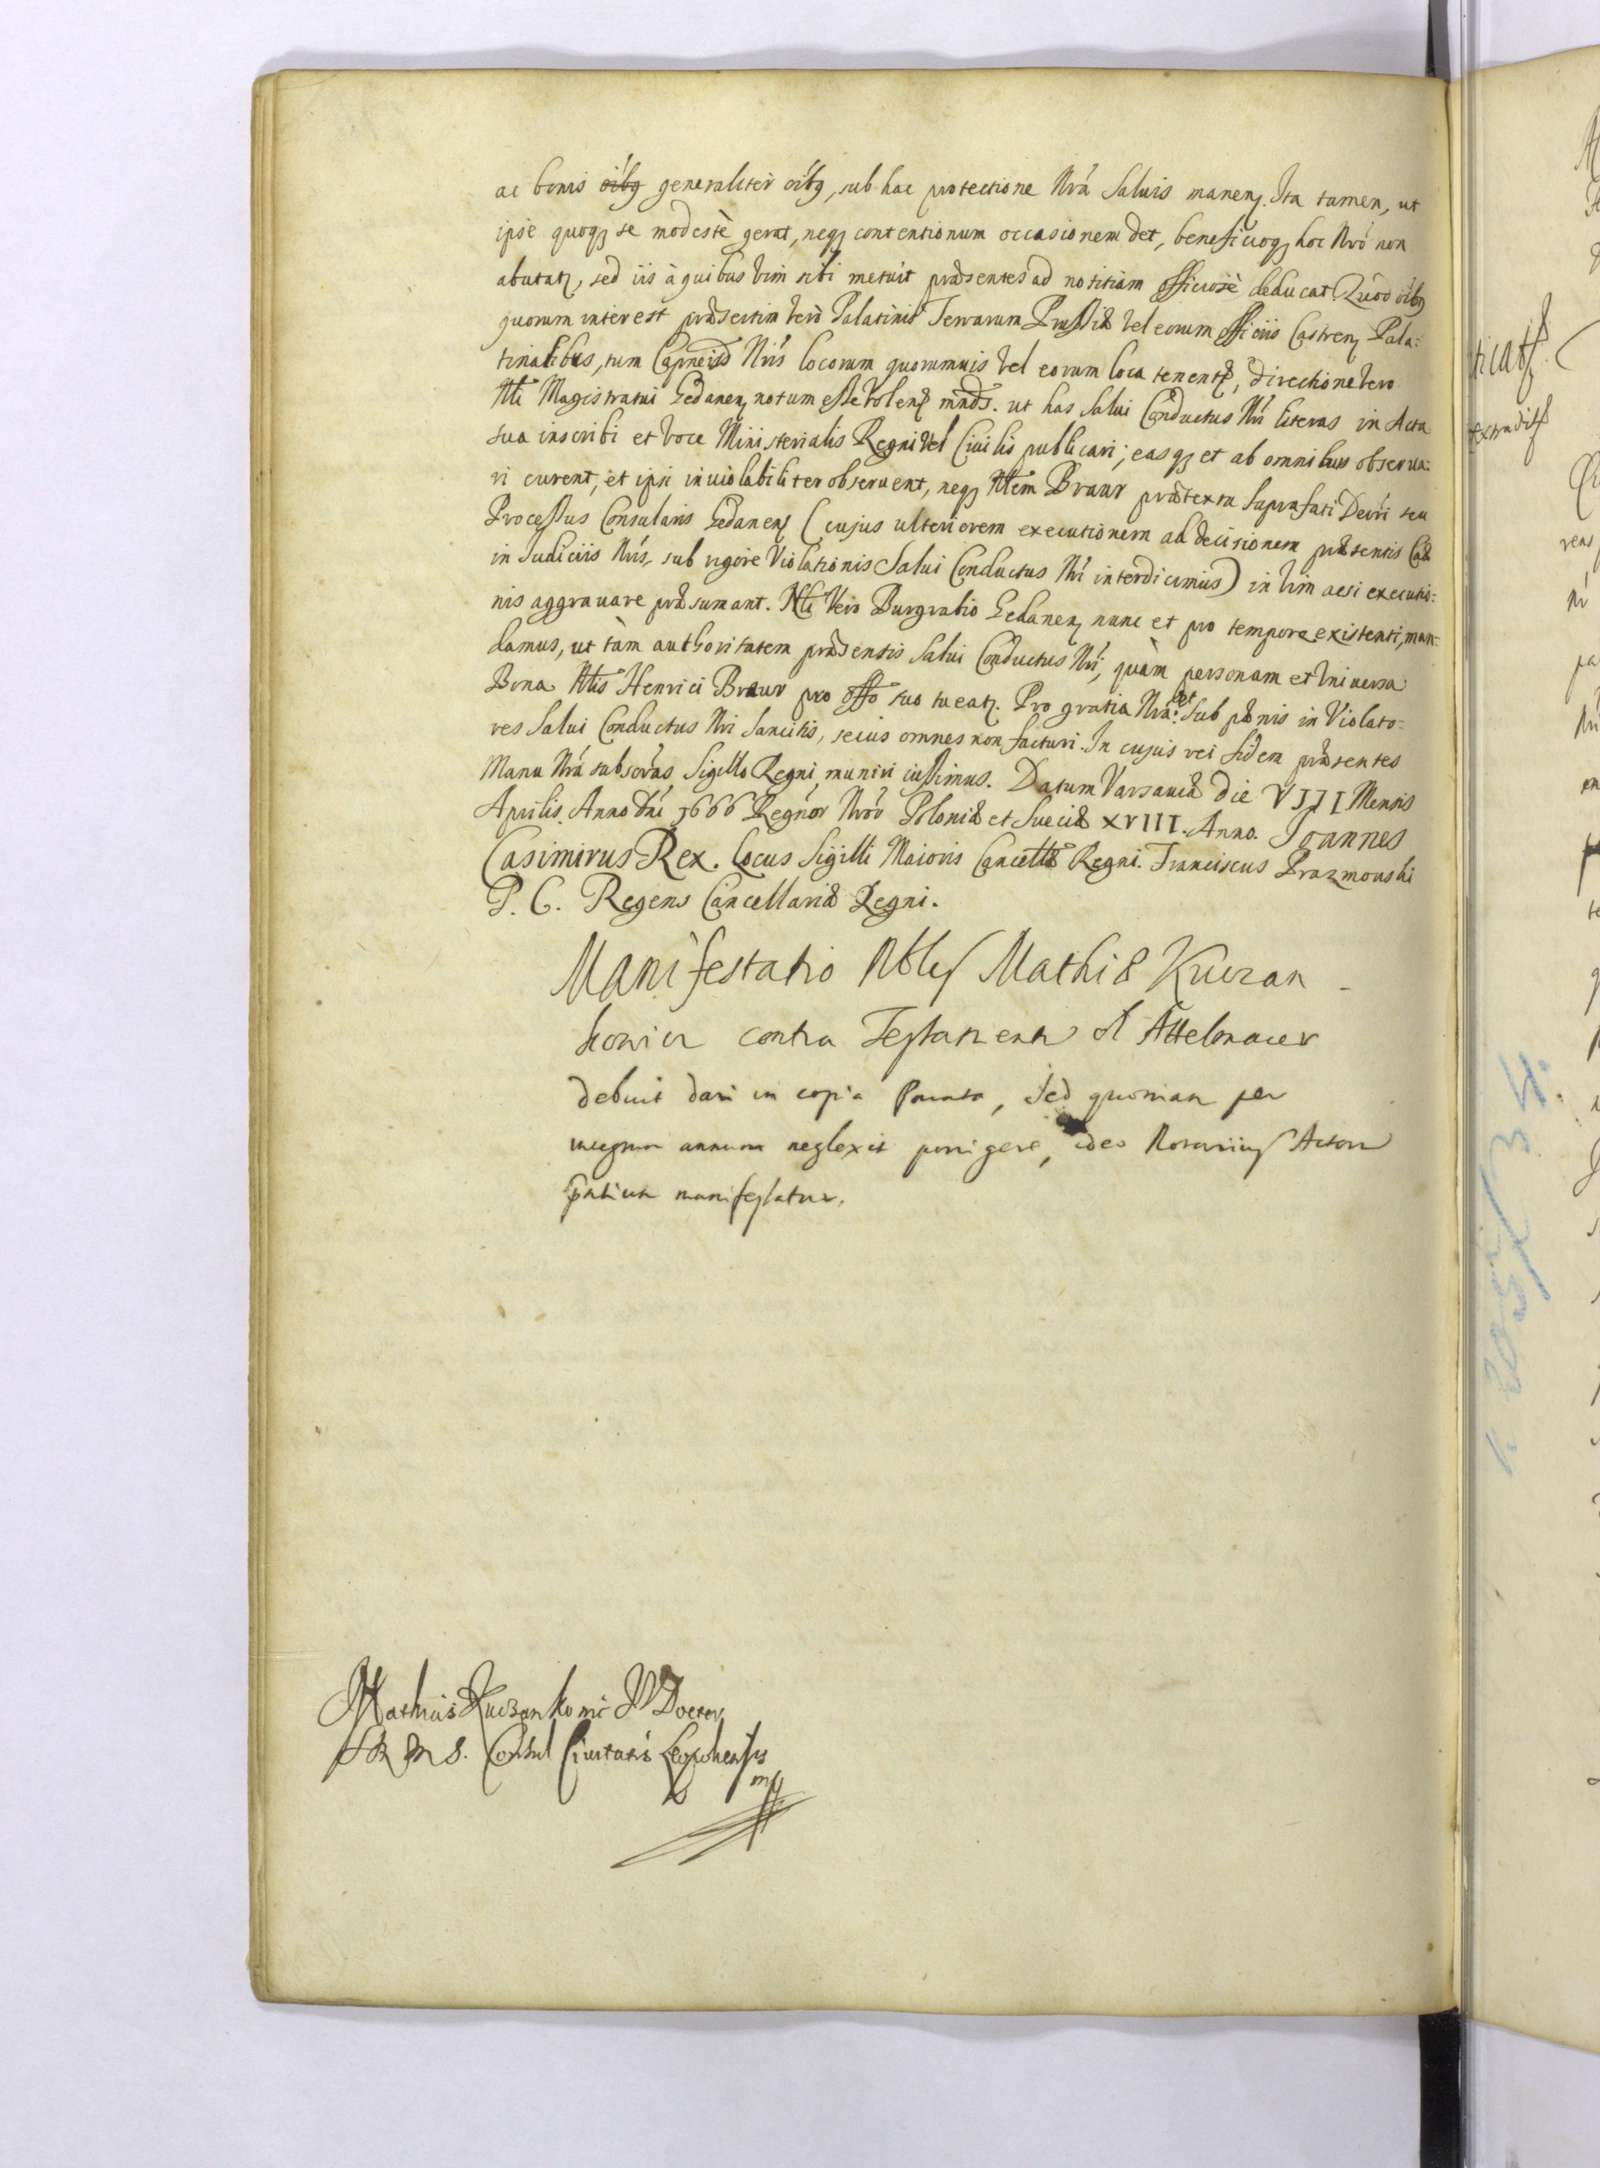 ac bonis oibq generaliter oibq, sub hac protectione Nra Saluis manen. Ita tamen, ut
ipse quoq se modestè gerat, neq contentionum occasionem det, beneficioq hoc Nro non
abutat, sed iis à quibus vim sibi metuit præsentes ad notitiam officiosè deducat Quod oibq
quorum interest præsertim verò Palatinis Terrarum Prussiæ vel eorum officiis Castren Pala:
tinalibus, tum Capneis Nris locorum quorumuis vel eorum loca tenent, directione vero
Nli Magistratui Gedanen notum esse volen mnds. ut has Salui Conductus Nri literas in Acta
sua inscribi et voce Ministerialis Regni vel Ciuilis publicari; easq et ab omnibus observa:
ri curent, et ipsi inviolabiliter observent, neq Nlem Braur prætextu suprafati Decri seu
Processus Consularis Gedanen (cujus ulteriorem executionem ad decisionem præsentis Cae
in Judiciis Nris, sub rigore Violationis Salui Conductus Nri interdicimus) in vim acsi executio:
nis aggravare præsumant. Nli Vero Burgrabio Gedanen nunc et pro tempore existenti, man:
damus, ut tàm authoritatem præsentis Salui Conductus Nri, quàm personam et Universa
Bona Nlis Henrici Braur pro offo suo tueat. Pro gratia Nra: et Sub pænis in Violato:
res Salui Conductus Nri Sancitis, secus omnes non facturi. In cujus rei fidem præsentes
Manu Nrá subscras Sigillo Regni muniri iussimus. Datum Varsaviæ die VJJI Mensis
Aprilis Anno dni 1666 Regnor Nror Poloniæ et Sueciæ XVIII. Anno. Joannes
Casimirus Rex. Locus Sigilli Maioris Cancellæ Regni. Franciscus Prazmouski
P. C. Regens Cancellariæ Regni.
Manifestatio Nbles Mathiæ Kuczan-
kowicz contra Testament Attelmaier
debuit dari in copia Parata, sed quoniam per
integrum annum neglexit porrigere, ideo Notarius Actorum
pntium manifestatur.
Mathias Kuczankowic Doctor
S R M S. Consul Ciuitatis Leopoliensis
mp
ticat
extradit